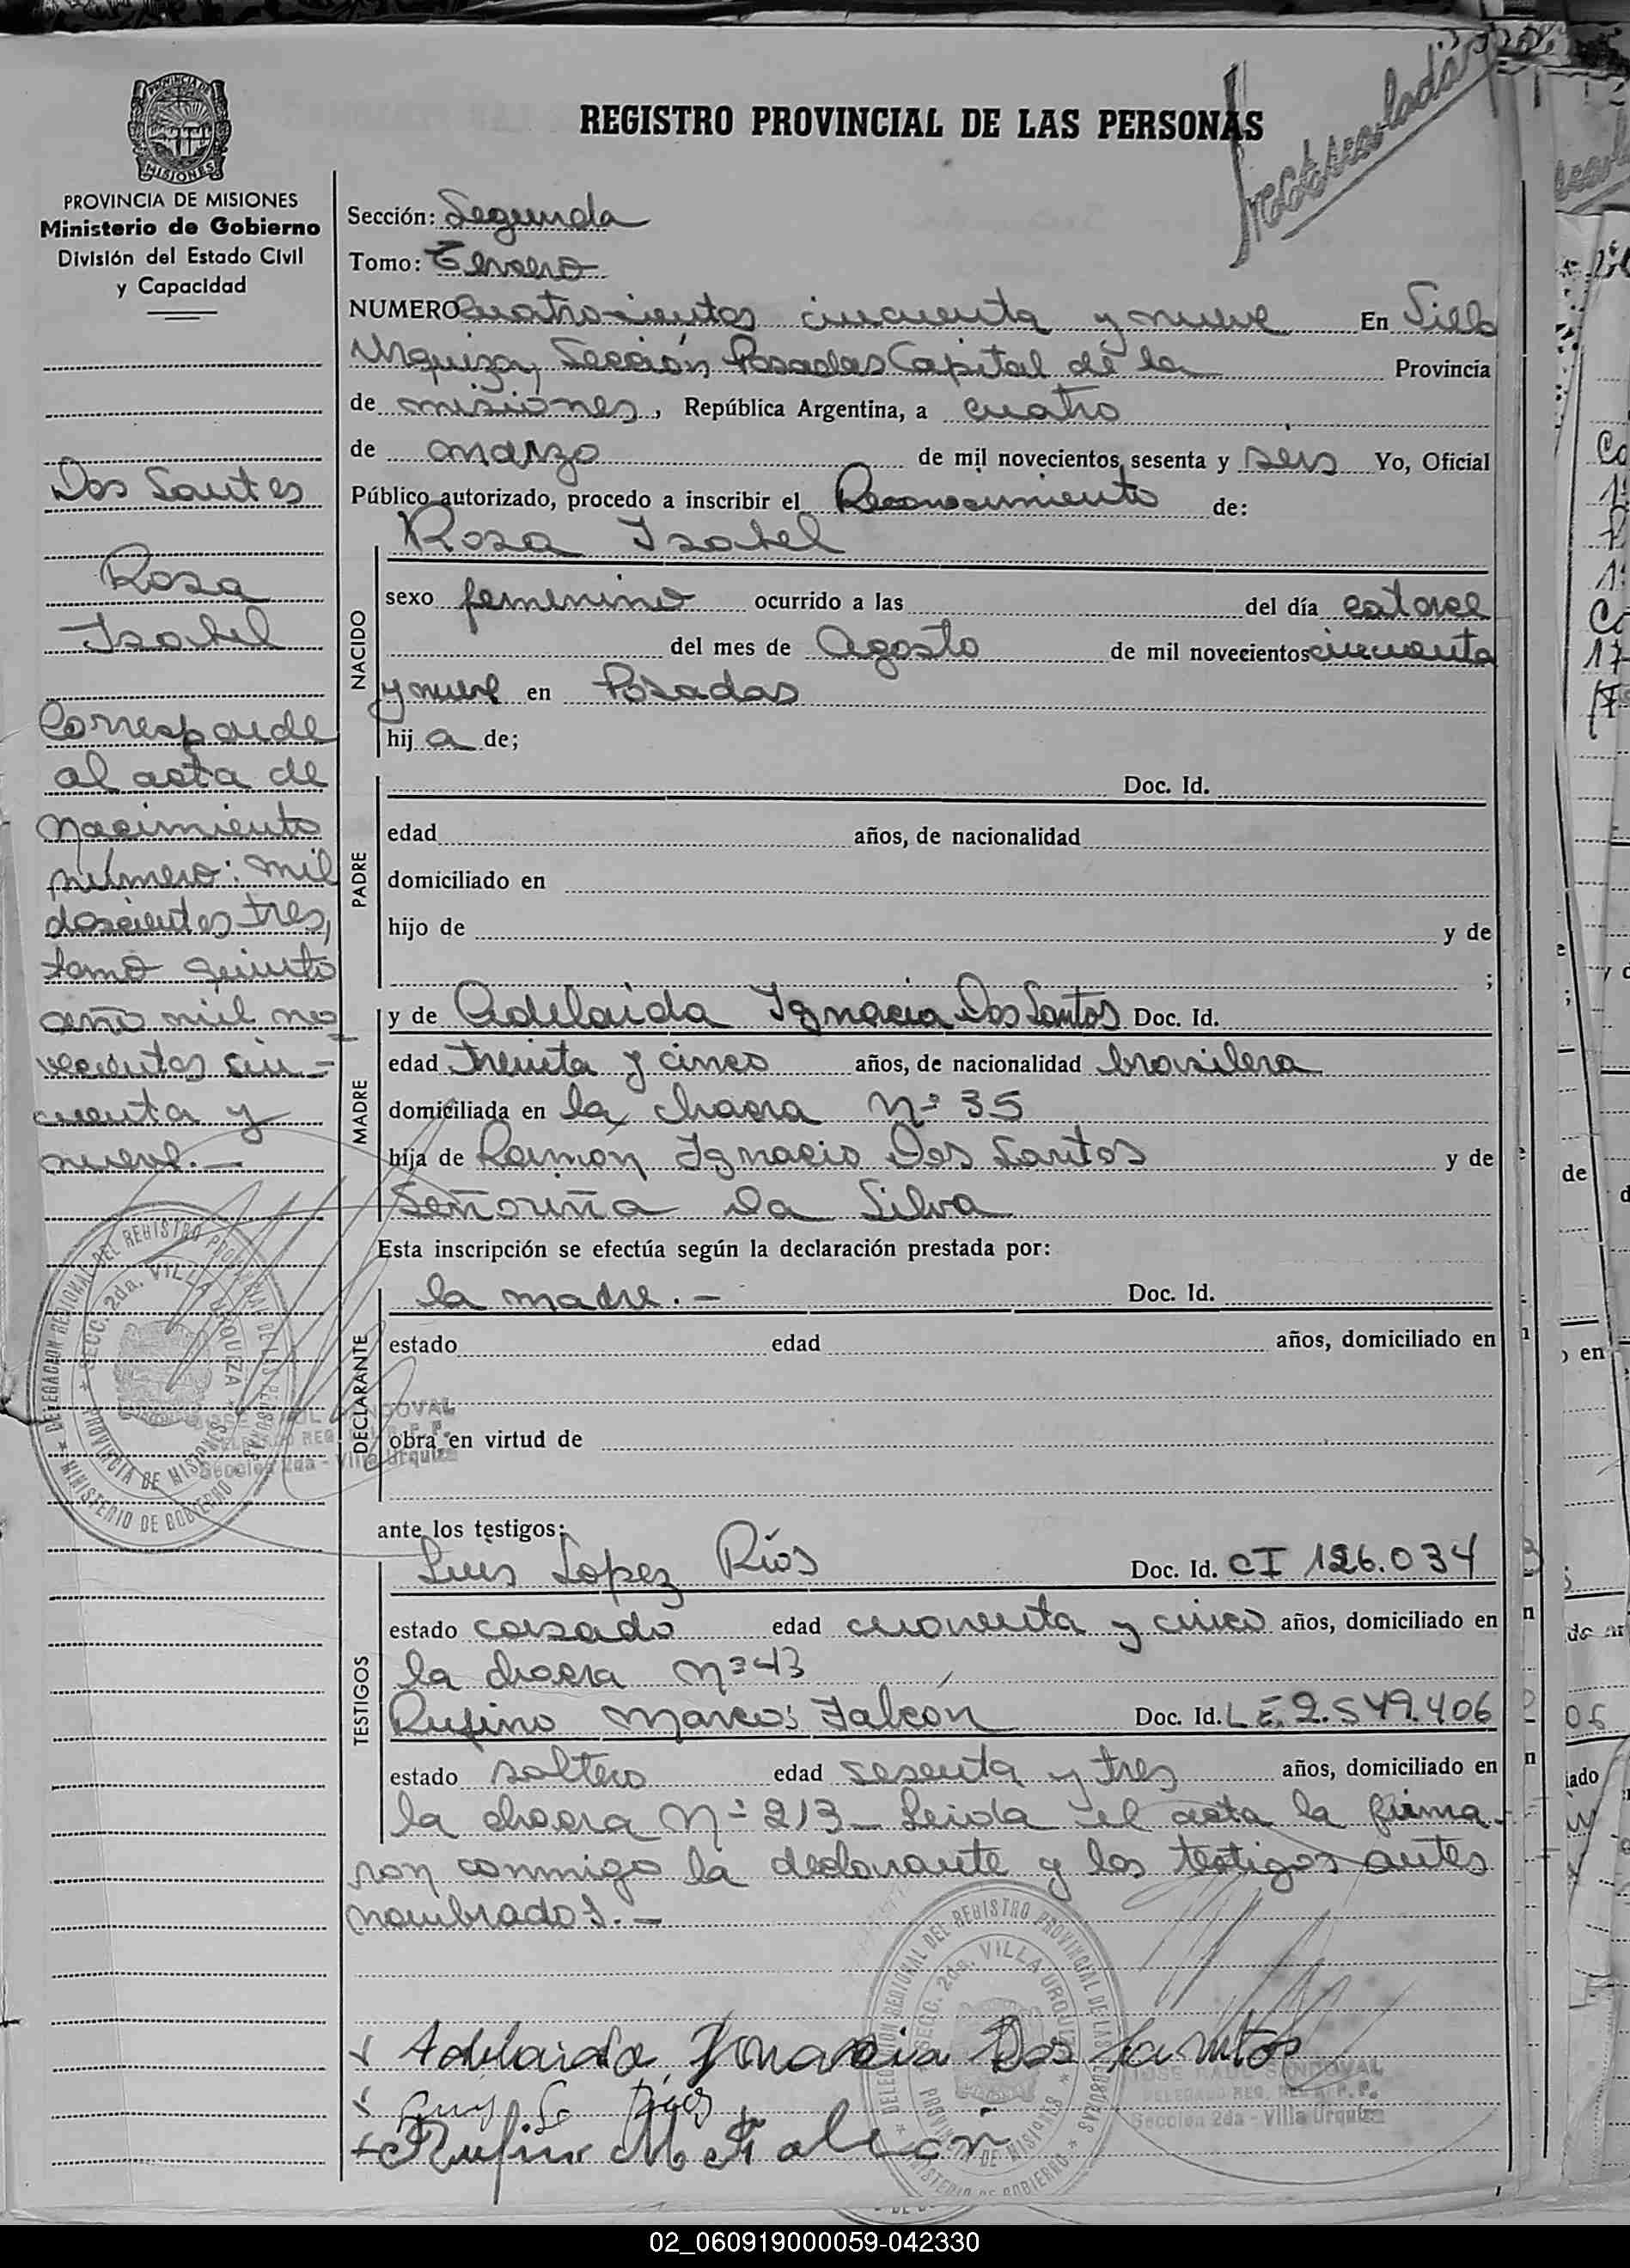 REGISTRO PROVINCIAL DE LAS PERSONAS
PROVINCIA DE MISIONES
Ministerio de Gobierno
División del Estado Civil
y Capacidad
Dos Santos
Rosa
Isabel
Corresponde
al acta de
nacimiento
número: mil
doscientos tres,
tomo quinto
año mil no
vecientos cin-
cuenta y
nueve.-
Sección: Segunda
Tomo: Tercero
NUMERO Cuatrocientos cincuenta y nueve En Villa
Urquiza, Sección Posadas Capital de la Provincia
de misiones, República Argentina, a cuatro
de marzo de mil novecientos sesenta y seis Yo, Oficial
Público autorizado, procedo a inscribir el Reconocimiento de:
Rosa Isabel
NACIDO
sexo femenino ocurrido a las del día catorce
del mes de Agosto de mil novecientos cincuenta
y nueve en Posadas
hij a de;
PADRE
Doc. Id.
edad años, de nacionalidad
domiciliado en
hijo de y de
;
MADRE
y de Adelaida Ignacia Dos Santos Doc. Id.
edad treinta y cinco años, de nacionalidad brasilera
domiciliada en la chacra Nº 35
hija de Ramón Ignacio Dos Santos y de
Señoriña Da Silva
Esta inscripción se efectúa según la declaración prestada por:
DECLARANTE
la madre.- Doc. Id.
estado edad años, domiciliado en
obra en virtud de
ante los testigos:
TESTIGOS
Luis Lopez Ríos Doc. Id. CI 126.034
estado casado edad cuarenta y cinco años, domiciliado en
la chacra Nº 43
Rufino Marcos Falcón Doc. Id. L E. 2.549.406
estado soltero edad sesenta y tres años, domiciliado en
la chacra Nº 213 - Leida el acta la firma-
ron conmigo la declarante y los testigos antes
nombrados.-
DELEGACION REGIONAL DEL REGISTRO PROVINCIAL DE LAS PERSONAS
SECC. 2da. VILLA URQUIZA
PROVINCIA DE MISIONES
MINISTERIO DE GOBIERNO
Adelaida Ignacia Dos Santos
Rufino M Falcón
JOSE RAUL SANDOVAL
DELEGADO REG. R. P. P.
Sección 2da - Villa Urquiza
02_060919000059-042330